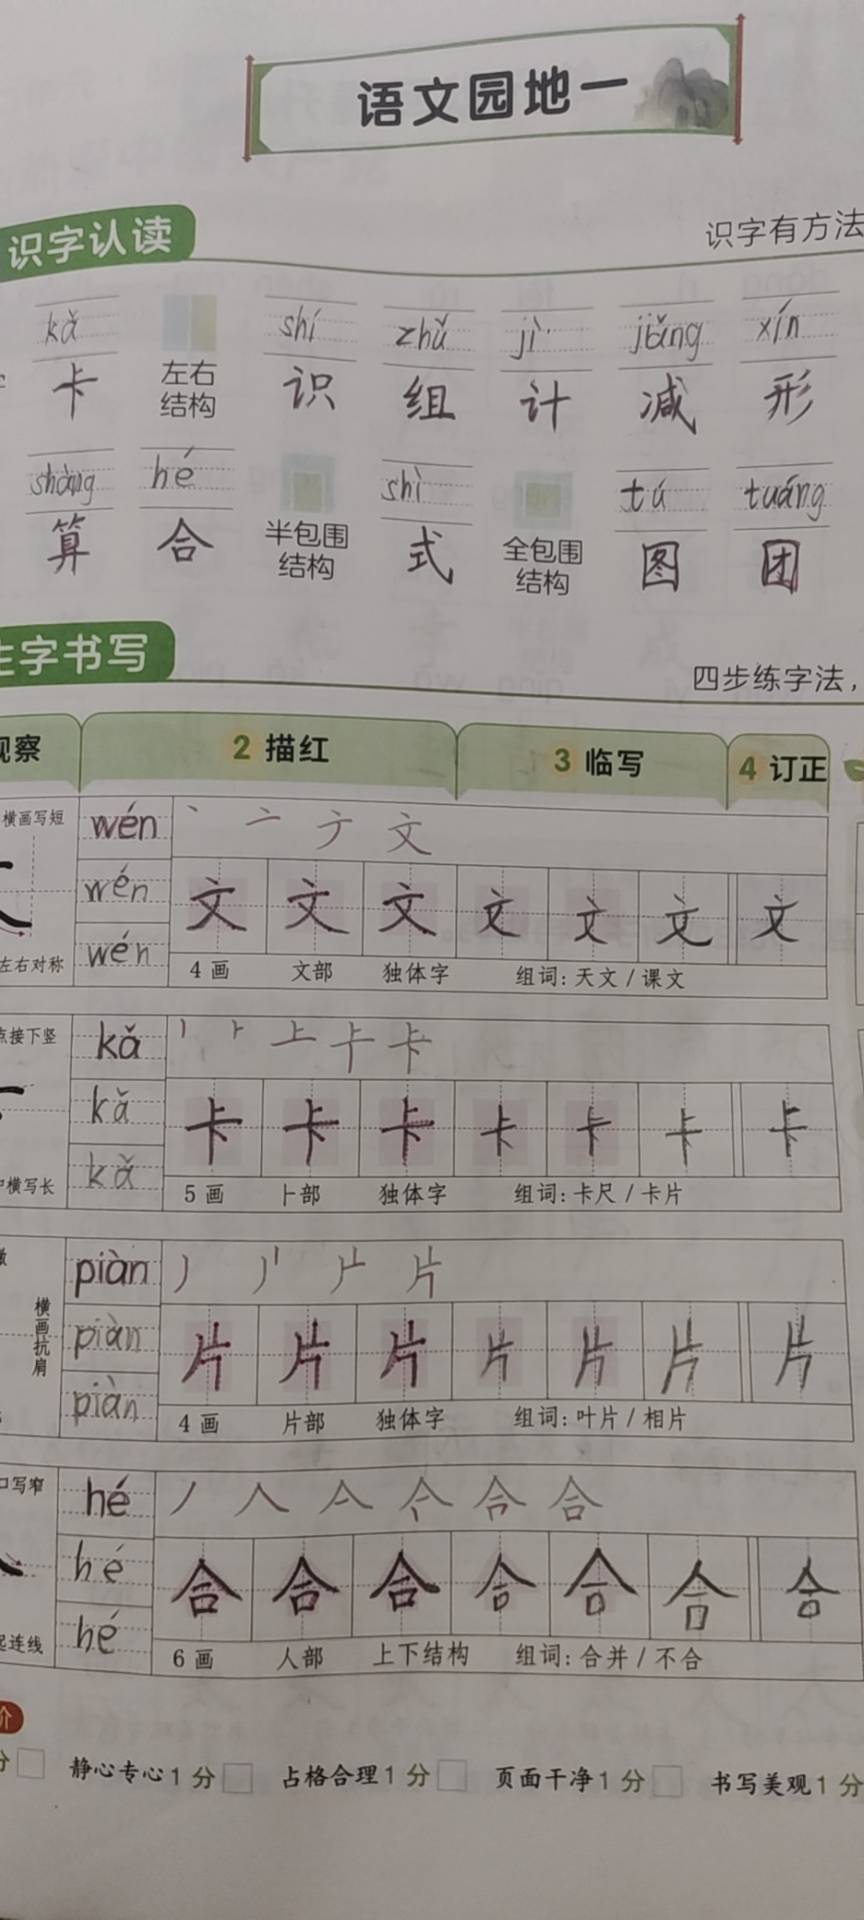 语文园地一
识字认读
识字有方法
kǎ shí zhǔ jì jiǎng xín
卡 左右结构 识 组 计 减 形
shàng hé shì tú tuáng
算 合 半包围结构 式 全包围结构 图 团
生字书写
四步练字法，
观察 2 描红 3 临写 4 订正
横画写短 wén 丶 亠 ナ 文
wén 文 文 文 文 文 文 文
左右对称 wén 4 画 文部 独体字 组词：天文 / 课文
点接下竖 kǎ 丨 卜 上 卡 卡
kǎ 卡 卡 卡 卡 卡 卡 卡
横写长 kǎ 5 画 卜部 独体字 组词：卡尺 / 卡片
piàn 丿 片
横画抗肩 piàn 片 片 片 片 片 片 片
piàn 4 画 片部 独体字 组词：叶片 / 相片
口写窄 hé 丿 人 亼 合 合
hé 合 合 合 合 合 合 合
起连线 hé 6 画 人部 上下结构 组词：合并 / 不合
价
分 静心专心 1 分 占格合理 1 分 页面干净 1 分 书写美观 1 分